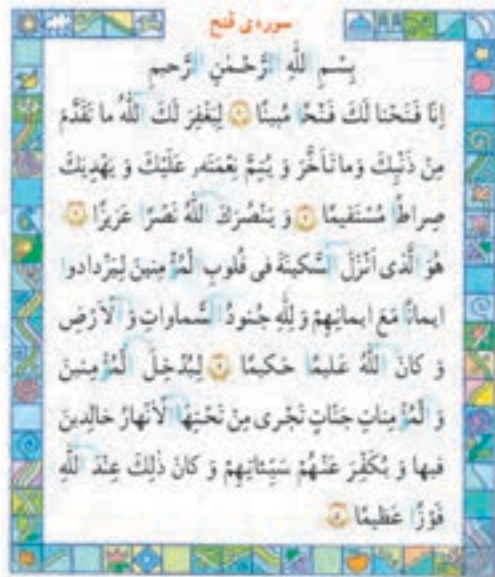 سوره‌ی فتح
بِسْمِ اللّٰهِ الرَّحْمٰنِ الرَّحیمِ
اِنّا فَتَحْنا لَكَ فَتْحًا مُبینًا ۱ لِیَغْفِرَ لَكَ اللّٰهُ ما تَقَدَّمَ
مِنْ ذَنْبِكَ وَ ما تَاَخَّرَ وَ یُتِمَّ نِعْمَتَه‌ٗ عَلَیْكَ وَ یَهْدِیَكَ
صِراطًا مُسْتَقیمًا ۲ وَ یَنْصُرَكَ اللّٰهُ نَصْرًا عَزیزًا ۳
هُوَ الَّذی اَنْزَلَ السَّكینَةَ فی قُلوبِ الْمُؤْمِنینَ لِیَزْدادوا
ایمانًا مَعَ ایمانِهِمْ وَ لِلّٰهِ جُنودُ السَّماواتِ وَ الْاَرْضِ
وَ كانَ اللّٰهُ عَلیمًا حَكیمًا ۴ لِیُدْخِلَ الْمُؤْمِنینَ
وَ الْمُؤْمِناتِ جَنّاتٍ تَجْری مِنْ تَحْتِهَا الْاَنْهارُ خالِدینَ
فیها وَ یُكَفِّرَ عَنْهُمْ سَیِّئاتِهِمْ وَ كانَ ذٰلِكَ عِنْدَ اللّٰهِ
فَوْزًا عَظیمًا ۵